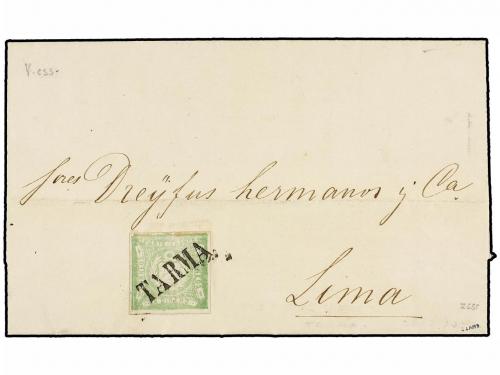 V. ess.
Sores Dreÿfus hermanos y Ca
TARMA.
Lima